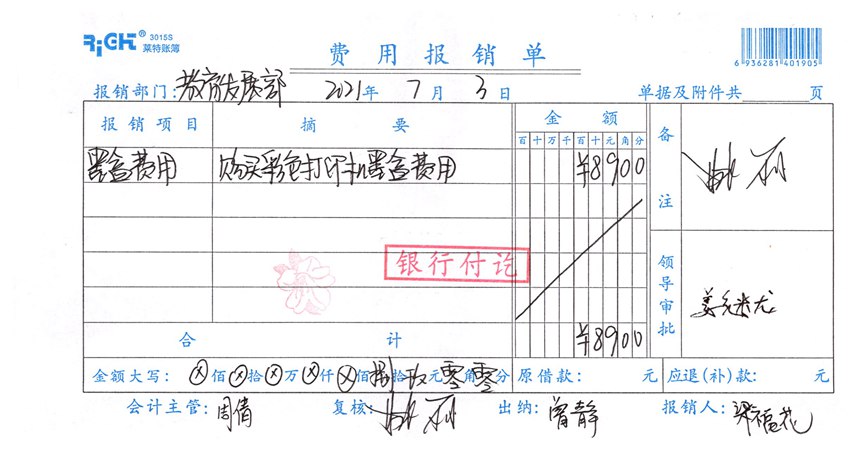 RiGHT® 3015S
莱特账簿
费用报销单
6 936281 401905
报销部门:教育发展部 2021年 7月 3日 单据及附件共 页
报销项目 摘要 金额 备注
百十万千百十元角分
墨盒费用 购买彩色打印机墨盒费用 ¥8900
银行付讫
领导审批
合计 ¥8900
金额大写:ⓧ佰ⓧ拾ⓧ万ⓧ仟ⓧ佰捌拾玖元零角零分 原借款: 元 应退(补)款: 元
会计主管:周倩 复核: 出纳:曾静 报销人:梁福花